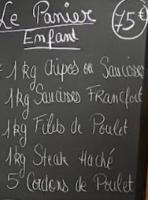 Le Panier 75€
Enfant
1kg Chipos ou Saucisses
1kg Saucisses Francfort
1kg Filets de Poulet
1kg Steak Haché
5 Cordons de Poulet